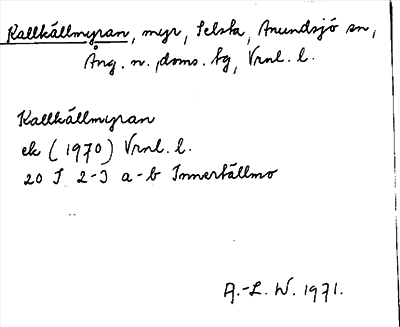 Kallkällmyran, myr, Selsta, Anundsjö sn,
Ång. n. doms. fg, Vrnl. l.
Kallkällmyran
ek (1970) Vrnl. l.
20 I 2-3 a-b Innertällmo
A.-L. W. 1971.